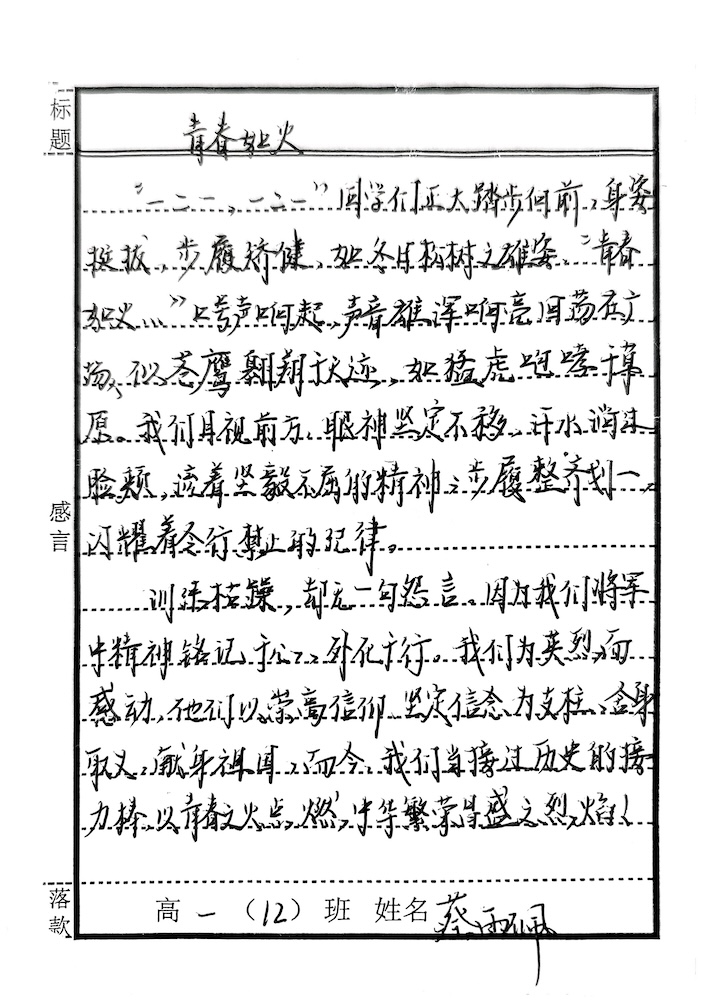 标题
青春如火
“一二一，一二一”同学们正大踏步向前，身姿
挺拔，步履矫健，如冬日松树之雄姿，“青春
如火...”口号声响起，声音雄浑响亮回荡在广
场，似苍鹰翱翔于天迹，如猛虎咆哮于草
原。我们目视前方，眼神坚定不移，汗水淌
脸颊，流着坚毅不屈的精神；步履整齐划一，
感言
闪耀着令行禁止的纪律。
训练枯燥，却无一句怨言。因为我们将军
中精神铭记于心，外化于行。我们为英烈而
感动，他们以崇高信仰，坚定信念为支柱，舍身
取义，献身祖国，而今，我们当接过历史的接
力棒，以青春之火点燃中华繁荣昌盛之烈焰！
落款
高一（12）班 姓名 蔡雨佩